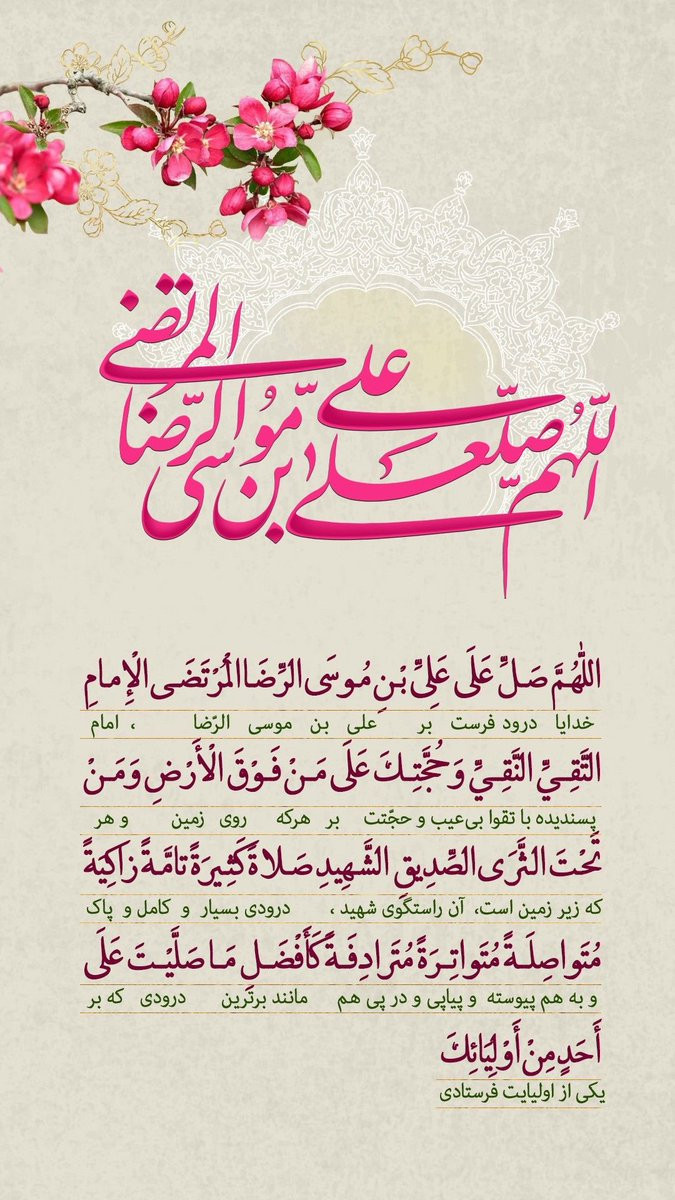 اللّهم صلّ علی علی بن موسی الرّضا المرتضی
اللّٰهُمَّ صَلِّ عَلَى عَلِيِّ بْنِ مُوسَى الرِّضَا الْمُرْتَضَى الْإِمامِ
خدایا درود فرست بر علی بن موسی الرّضا ، امام
التَّقِيِّ النَّقِيِّ وَحُجَّتِكَ عَلَى مَنْ فَوْقَ الْأَرْضِ وَمَنْ
پسندیده با تقوا بی‌عیب و حجّتت بر هرکه روی زمین و هر
تَحْتَ الثَّرَى الصِّدِيقِ الشَّهِيدِ صَلاةً كَثِيرَةً تامَّةً زاكِيَةً
که زیر زمین است، آن راستگوی شهید ، درودی بسیار و کامل و پاک
مُتَواصِلَةً مُتَواتِرَةً مُتَرادِفَةً كَأَفْضَلِ مَا صَلَّيْتَ عَلَى
و به هم پیوسته و پیاپی و در پی هم مانند برترین درودی که بر
أَحَدٍ مِنْ أَوْلِيَائِكَ
یکی از اولیایت فرستادی